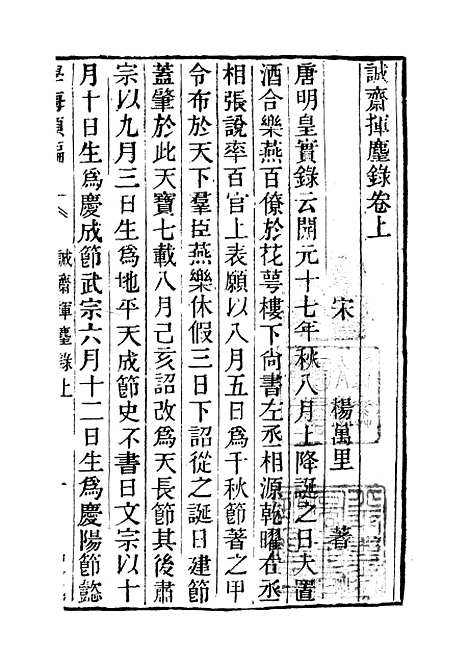 誠齋揮麈錄卷上
宋　楊萬里　著
唐明皇實錄云開元十七年秋八月上降誕之日大置
酒合樂燕百僚於花萼樓下尚書左丞相源乾曜右丞
相張說率百官上表願以八月五日為千秋節著之甲
令布於天下羣臣燕樂休假三日下詔從之誕日建節
蓋肇於此天寶七載八月己亥詔改為天長節其後肅
宗以九月三日生為地平天成節史不書日文宗以十
月十日生爲慶成節武宗六月十二日生爲慶陽節懿
學海類編
誠齋揮麈錄上
一